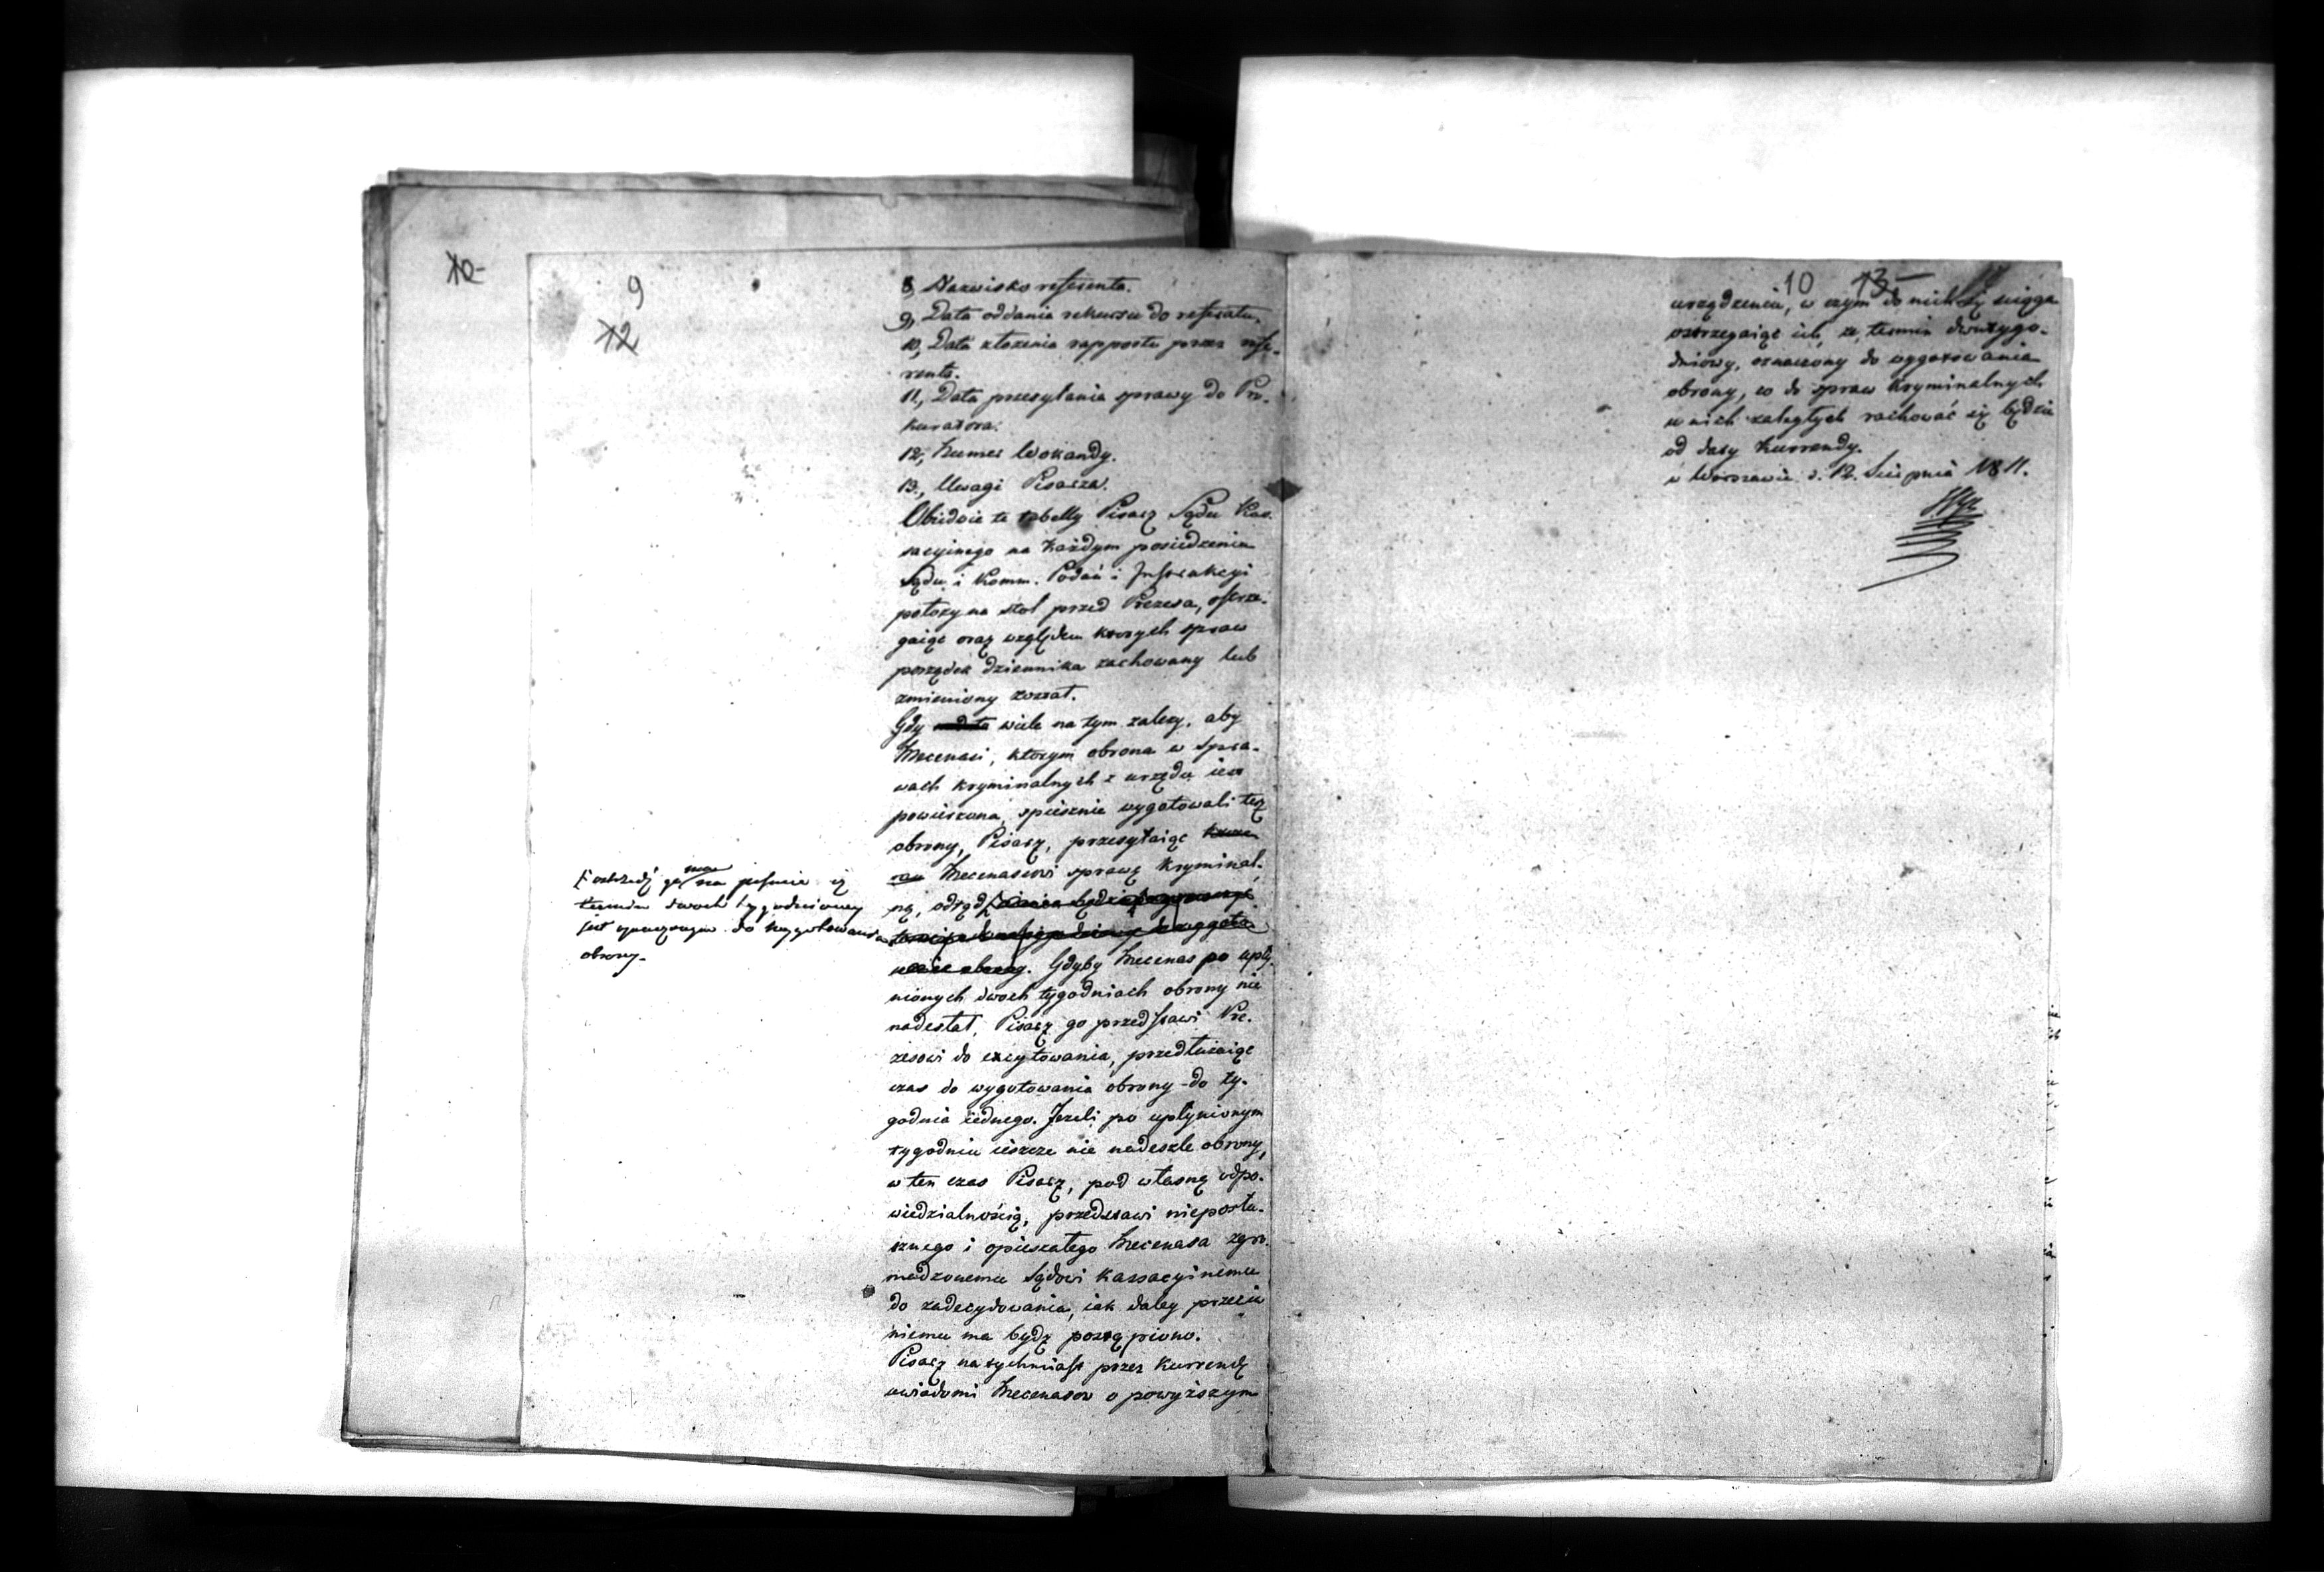 12
9
12
8, Nazwisko referenta.
9, Data oddania rekursu do referatu.
10, Data złożenia rapportu przez refe-
renta.
11, Data przesyłania sprawy do Pro-
kuratora.
12, Numer Wokandy.
13, Uwagi Pisarza.
Obiedwie te tabelle Pisarz Sądu Kas-
sacyinego na każdym posiedzeniu
Sądu i Komm. Podań i Instrukcyi
położy na stół przed Prezesa, ostrze-
gaiąc oraz względem których spraw
porządek dziennika zachowany lub
zmieniony został.
Gdy wiele na tym zależy, aby
Mecenasi, którym obrona w spra-
wach kryminalnych z urzędu iest
powierzona, spiesznie wygotowali też
obrony, Pisarz, przesyłaiąc
Mecenasowi sprawę kryminal-
ną, odtąd
ostrzedz go ma na piśmie iż
termin dwóch tygodniowy
jest wyznaczonym do wygotowania
obrony.
obrony. Gdyby Mecenas po upły-
nionych dwóch tygodniach obrony nie
nadesłał, Pisarz go przedstawi Pre-
zesowi do excytowania, przedłużaiąc
czas do wygotowania obrony do ty-
godnia iednego. Jeżeli po upłynionym
tygodniu ieszcze nie nadeszle obrony,
w ten czas Pisarz, pod własną odpo-
wiedzialnością, przedstawi nieposłu-
sznego i opieszałego Mecenasa zgro-
madzonemu Sądowi Kassacyinemu
do zadecydowania, iak daley przeciw
niemu ma bydź postąpiono.
Pisarz natychmiast przez Kurrendę
uwiadomi Mecenasow o powyższym
10 13
urządzeniu, w czym do nich się ściąga
ostrzegaiąc ich, że termin dwutygo-
dniowy, oznaczony do wygotowania
obrony, co do spraw Kryminalnych
u nich zaległych rachować się będzie
od daty Kurrendy.
w Warszawie d. 12. Sierpnia 1811.